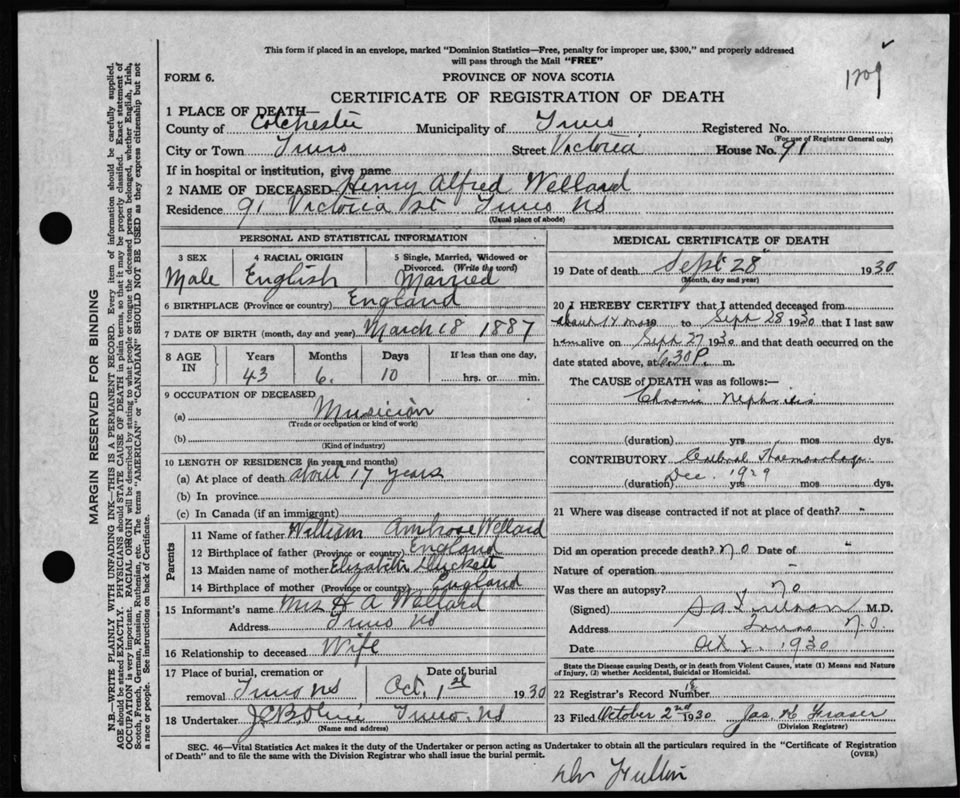 This form if placed in an envelope, marked "Dominion Statistics—Free, penalty for improper use, $300," and properly addressed
will pass through the Mail "FREE"
FORM 6. PROVINCE OF NOVA SCOTIA
CERTIFICATE OF REGISTRATION OF DEATH
1 PLACE OF DEATH—
County of Colchester Municipality of Truro Registered No.
(For use of Registrar General only)
City or Town Truro Street Victoria House No. 91
If in hospital or institution, give name
2 NAME OF DECEASED Henry Alfred Wellard
Residence 91 Victoria St Truro NS
(Usual place of abode)
MARGIN RESERVED FOR BINDING
N.B.—WRITE PLAINLY WITH UNFADING INK—THIS IS A PERMANENT RECORD. Every item of information should be carefully supplied.
AGE should be stated EXACTLY. PHYSICIANS should STATE CAUSE OF DEATH in plain terms, so that it may be properly classified. Exact statement of
OCCUPATION is very important. RACIAL ORIGIN will be described by stating to what people or tongue the deceased persons belonged, whether English, Irish,
Scotch, French, German, Russian, Ruthenian, etc. The terms "AMERICAN" or "CANADIAN" SHOULD NOT BE USED as they express citizenship but not
a race or people. See instructions on back of Certificate.
PERSONAL AND STATISTICAL INFORMATION
3 SEX 4 RACIAL ORIGIN 5 Single, Married, Widowed or
Divorced. (Write the word)
Male English Married
6 BIRTHPLACE (Province or country) England
7 DATE OF BIRTH (month, day and year) March 18 1887
8 AGE IN Years Months Days If less than one day,
43 6 10 hrs. or min.
9 OCCUPATION OF DECEASED
(a) Musician
(Trade or occupation or kind of work)
(b)
(Kind of industry)
10 LENGTH OF RESIDENCE (in years and months)
(a) At place of death about 17 years
(b) In province
(c) In Canada (if an immigrant)
Parents
11 Name of father William Ambrose Wellard
12 Birthplace of father (Province or country) England
13 Maiden name of mother Elizabeth
14 Birthplace of mother (Province or country) England
15 Informant's name Mrs H A Wellard
Address Truro NS
16 Relationship to deceased Wife
17 Place of burial, cremation or Date of burial
removal Truro NS Oct. 1st 1930
18 Undertaker Truro. NS
(Name and address)
MEDICAL CERTIFICATE OF DEATH
19 Date of death Sept 28 1930
(Month, day and year)
20 I HEREBY CERTIFY that I attended deceased from
about 14 mos 19 to Sept 28 1930 that I last saw
him alive on Sept 27 1930 and that death occurred on the
date stated above, at 6.30 P. m.
The CAUSE of DEATH was as follows:—
Chronic Nephritis
(duration) yrs mos dys.
CONTRIBUTORY Cerebral Haemorrhage
Dec. 1929
(duration) yrs. mos. dys.
21 Where was disease contracted if not at place of death? -
Did an operation precede death? NO Date of -
Nature of operation -
Was there an autopsy? NO
(Signed) M.D.
Address Truro N.S.
Date Oct 2, 1930
State the Disease causing Death, or in death from Violent Causes, state (1) Means and Nature
of Injury, (2) whether Accidental, Suicidal or Homicidal.
22 Registrar's Record Number
23 Filed October 2nd 1930 Jas. H Fraser
(Division Registrar)
SEC. 46—Vital Statistics Act makes it the duty of the Undertaker or person acting as Undertaker to obtain all the particulars required in the "Certificate of Registration
of Death" and to file the same with the Division Registrar who shall issue the burial permit. (OVER)